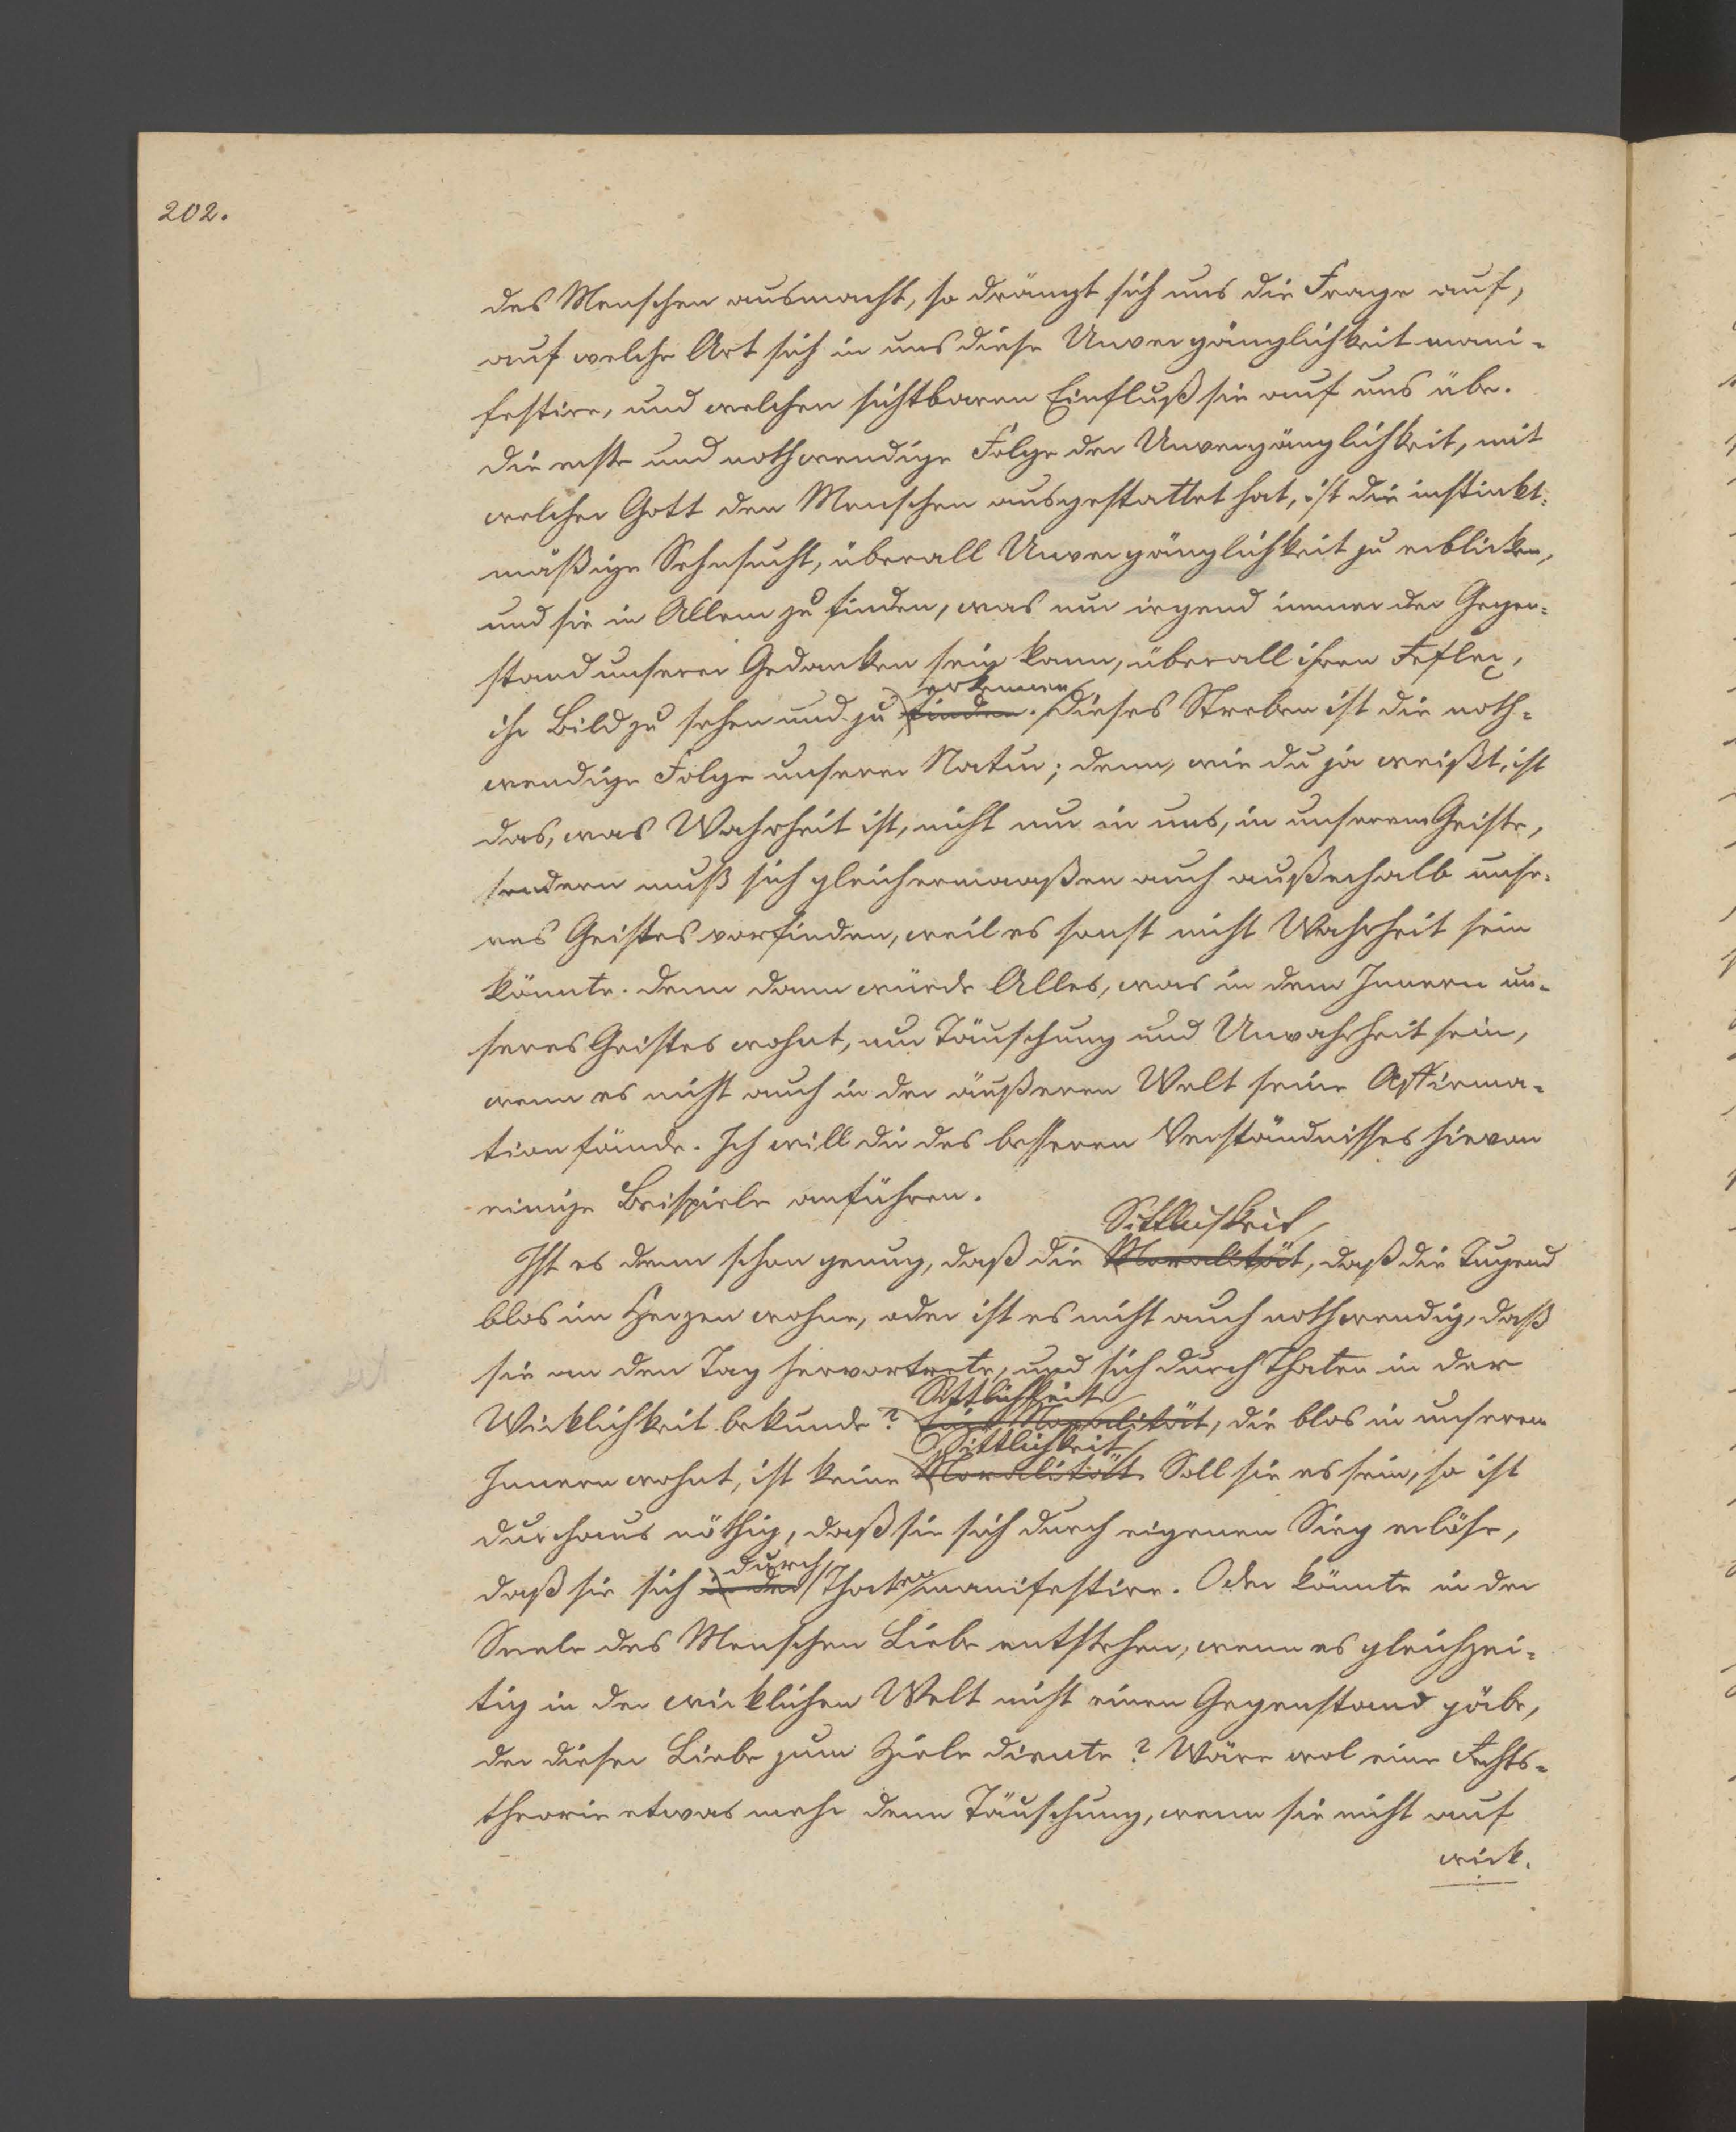 202.
des Menschen ausmacht, so drängt sich uns die Frage auf,
auf welche Art sich in uns diese Unvergänglichkeit mani-
festire, und welchen sichtbaren Einfluß sie auf uns übe.
Die erste und nothwendige Folge der Unvergänglichkeit, mit
welcher Gott den Menschen ausgestattet hat, ist die instinkt-
mäßige Sehnsucht, überall Unvergänglichkeit zu erblicken,
und sie in Allem zu finden, was nur irgend immer der Gegen-
stand unserer Gedanken sein kann, überall ihren Reflex,
erkennen
ihr Bild zu sehen und zu finden. Dieses Streben ist die noth-
wendige Folge unserer Natur; denn, wie du ja weißt, ist
das, was Wahrheit ist, nicht nur in uns, in unserem Geiste,
sondern muß sich gleichermaaßen auch außerhalb unse-
res Geistes vorfinden, weil es sonst nicht Wahrheit sein
könnte. Denn dann würde Alles, was in dem Innern un-
seres Geistes wohnt, nur Täuschung und Unwahrheit sein,
wenn es nicht auch in der äußeren Welt seine Affirma-
tion fände. Ich will dir des besseren Verständnisses hievon
einige Beispiele anführen.
Sittlichkeit
Ist es denn schon genug, daß die Moralität, daß die Tugend
blos im Herzen wohne, oder ist es nicht auch nothwendig, daß
sie an den Tag hervortrete, und sich durch Thaten in der
Sittlichkeit
Wirklichkeit bekunde? Eine Moralität, die blos in unserem
Sittlichkeit
Innern wohnt, ist keine Moralität. Soll sie es sein, so ist
durchaus nöthig, daß sie sich durch eigenen Sieg erlöse,
durch
daß sie sich in der Thaten manifestire. Oder könnte in der
Seele des Menschen Liebe entstehen, wenn es gleichzei-
tig in der wirklichen Welt nicht einen Gegenstand gäbe,
der dieser Liebe zum Ziele diente? Wäre wol eine Rechts-
theorie etwas mehr denn Täuschung, wenn sie nicht auf
wirk-